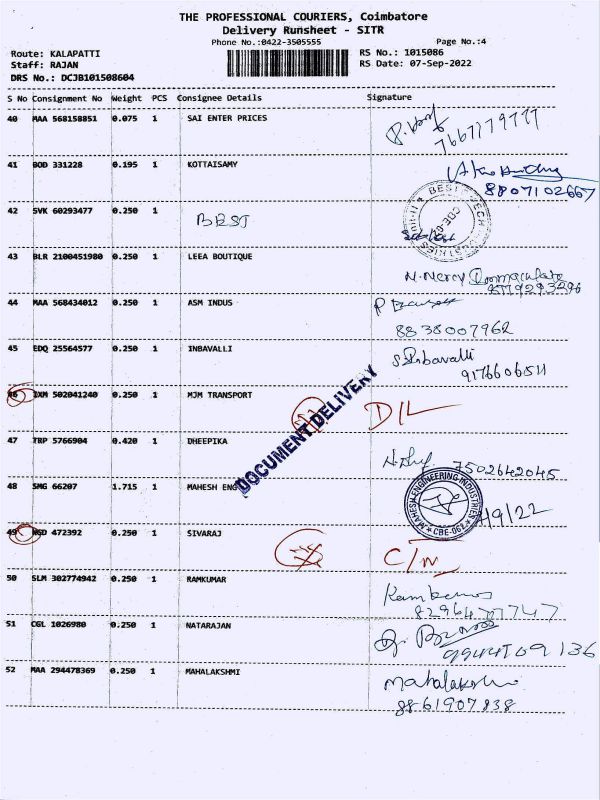 THE PROFESSIONAL COURIERS, Coimbatore
Delivery Runsheet - SITR
Phone No.:0422-3505555 Page No.:4
Route: KALAPATTI RS No.: 1015086
Staff: RAJAN RS Date: 07-Sep-2022
DRS No.: DCJB101508604
S No Consignment No Weight PCS Consignee Details Signature
40 MAA 568158851 0.075 1 SAI ENTER PRICES
41 BOD 331228 0.195 1 KOTTAISAMY
8807102667
42 SVK 60293477 0.250 1 BEST
43 BLR 2100451980 0.250 1 LEEA BOUTIQUE
N. Mercy Immaculate
44 MAA 568434012 0.250 1 ASM INDUS
8838007962
45 EDQ 25564577 0.250 1 INBAVALLI
9176606511
46 IXM 502041240 0.250 1 MJM TRANSPORT D/L
DOCUMENT DELIVERY
47 TRP 5766904 0.420 1 DHEEPIKA
7502642045
48 SMG 66207 1.715 1 MAHESH ENG
MAHESH ENGINEERING INDUSTRIES
CBE-062
/9/22
49 NGD 472392 0.250 1 SIVARAJ C/N
50 SLM 302774942 0.250 1 RAMKUMAR
51 CGL 1026980 0.250 1 NATARAJAN
52 MAA 294478369 0.250 1 MAHALAKSHMI
Mahalakshmi
8861907838